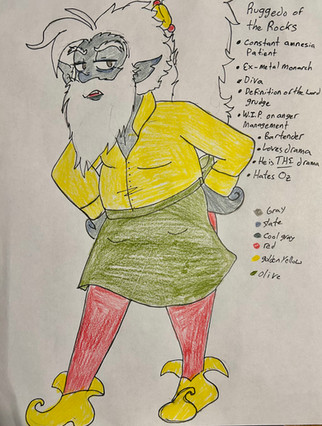 Ruggedo of
the Rocks
• Constant amnesia
Patient
• Ex-metal monarch
• Diva
• Definition of the word
grudge
• W.I.P. on anger
Management
• Bartender
• Loves drama
• He is THE drama
• Hates Oz
Gray
slate
Cool gray
red
golden yellow
olive